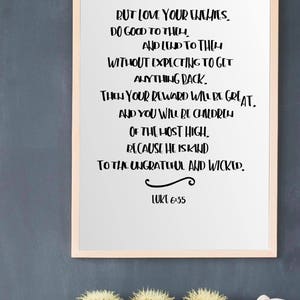 BUT LOVE YOUR ENEMIES.
DO GOOD TO THEM.
AND LEND TO THEM
WITHOUT EXPECTING TO GET
ANYTHING BACK.
THEN YOUR REWARD WILL BE GREAT.
AND YOU WILL BE CHILDREN
OF THE MOST HIGH.
BECAUSE HE IS KIND
TO THE UNGRATEFUL AND WICKED.
LUKE 6:35